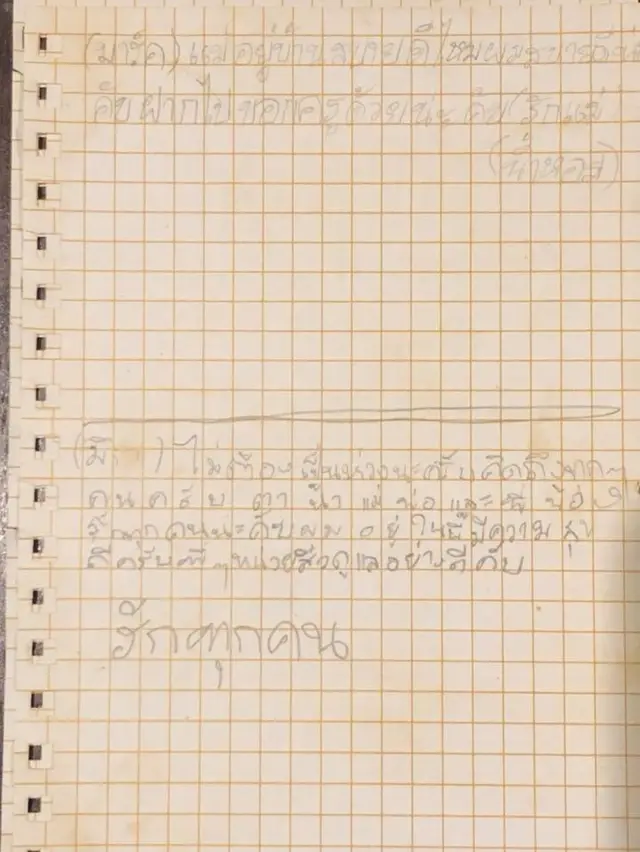 (มาร์ค) แม่อยู่บ้านสบายดีไหมผมสบายดี
คับฝากไปบอกครูด้วยน่ะคับ(รักแม่
(น้ำหอม)
(มิ ) ไม่ต้องเป็นห่วงนะครับคิดถึงทุกๆ
คนครับ ตา น้า แม่ พ่อ และ พี่ น้อง
รักทุกคนนะคับผม อยู่ในนี้มีความสุข
ดีครับพี่ๆหน่วยซีลดูแลอย่างดีคับ
รักทุกคน